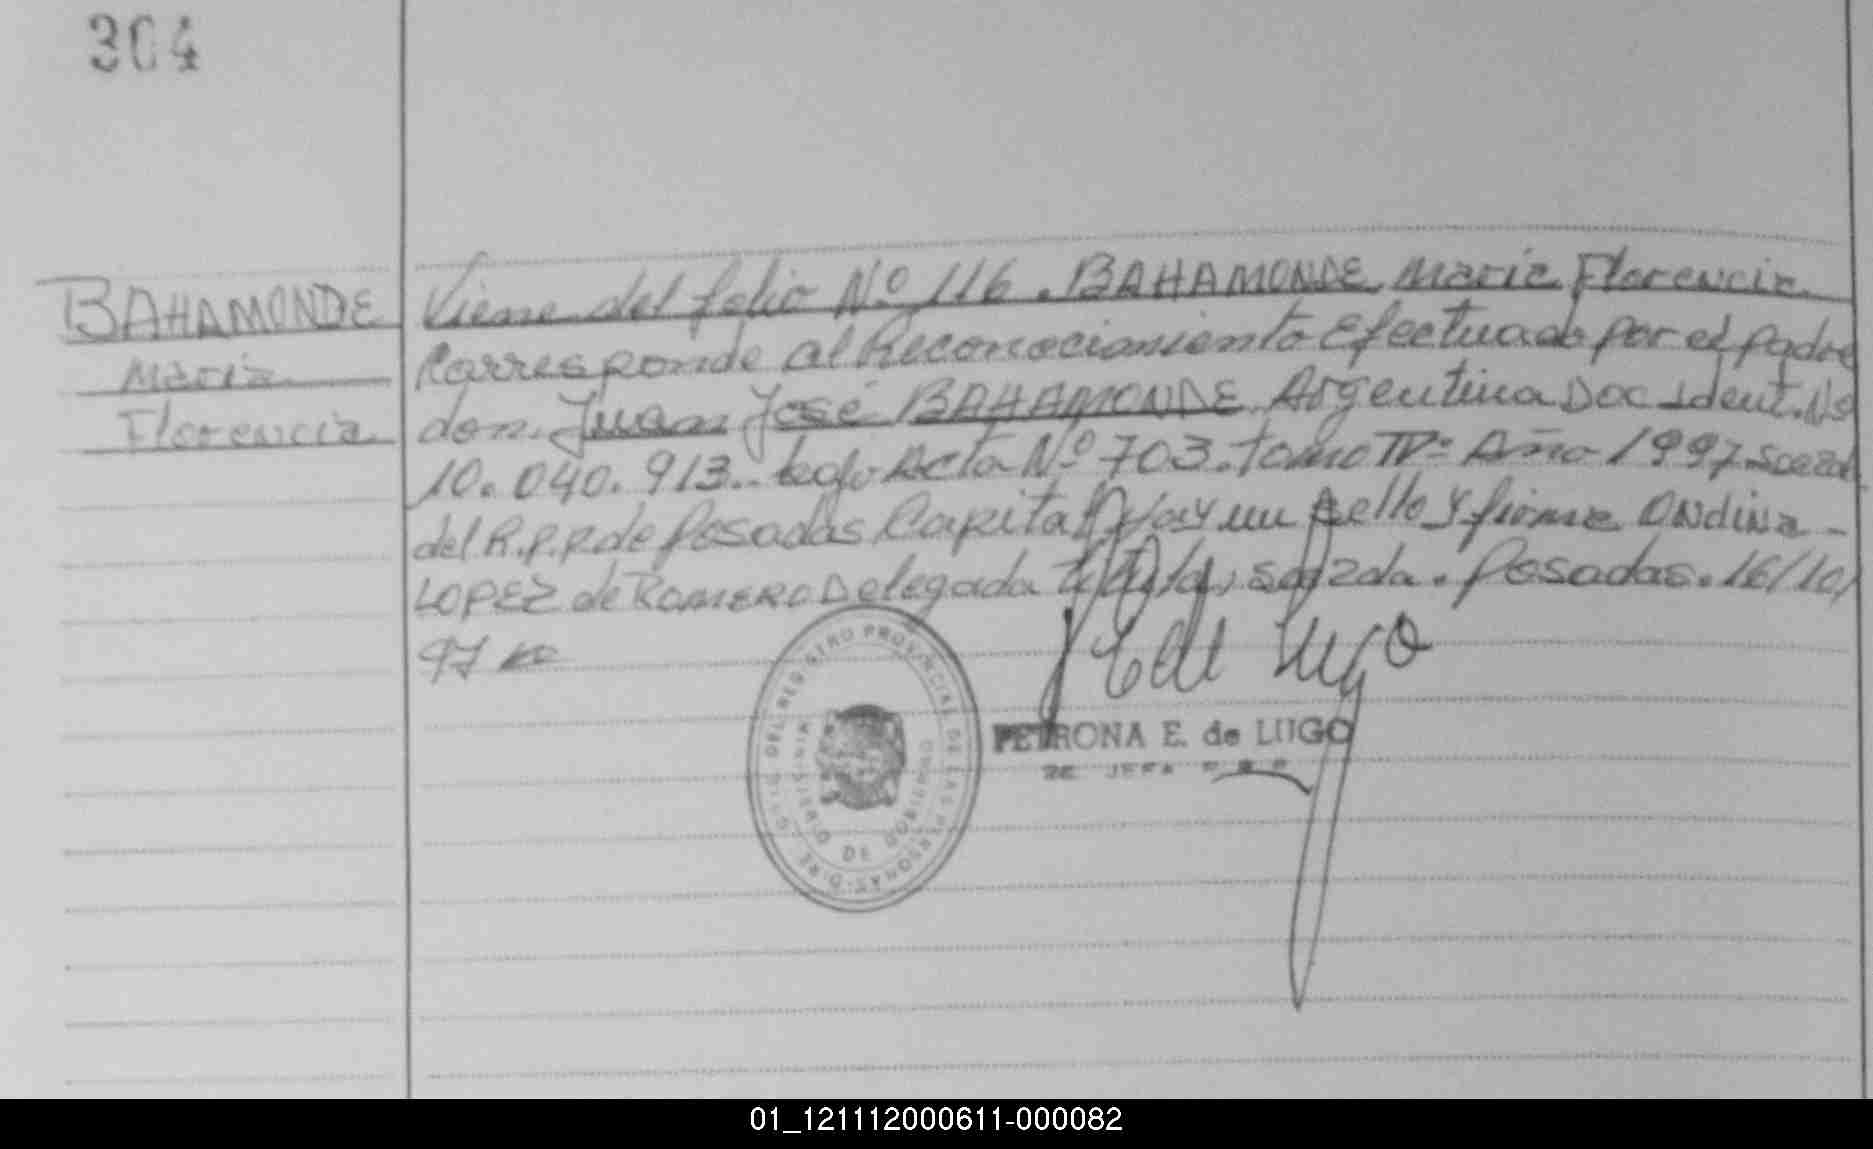 304
BAHAMONDE
Maria
Florencia
Viene del folio Nº 116. BAHAMONDE Maria Florencia
Corresponde al Reconocimiento Efectuado por el padre
don. Juan José BAHAMONDE Argentina Doc Ident. Nº
10.040.913.. bajo Acta Nº 703. tomo IVº Año 1997
del R.p.p. de Posadas Capital Hay un sello y firma Ondina -
LOPEZ de ROMERO Delegada Posadas. 16/10/
97
DEL REGISTRO PROVINCIAL DE LAS PERSONAS
MINISTERIO DE GOBIERNO
PETRONA E. de LUGO
2E JEFA
01_121112000611-000082